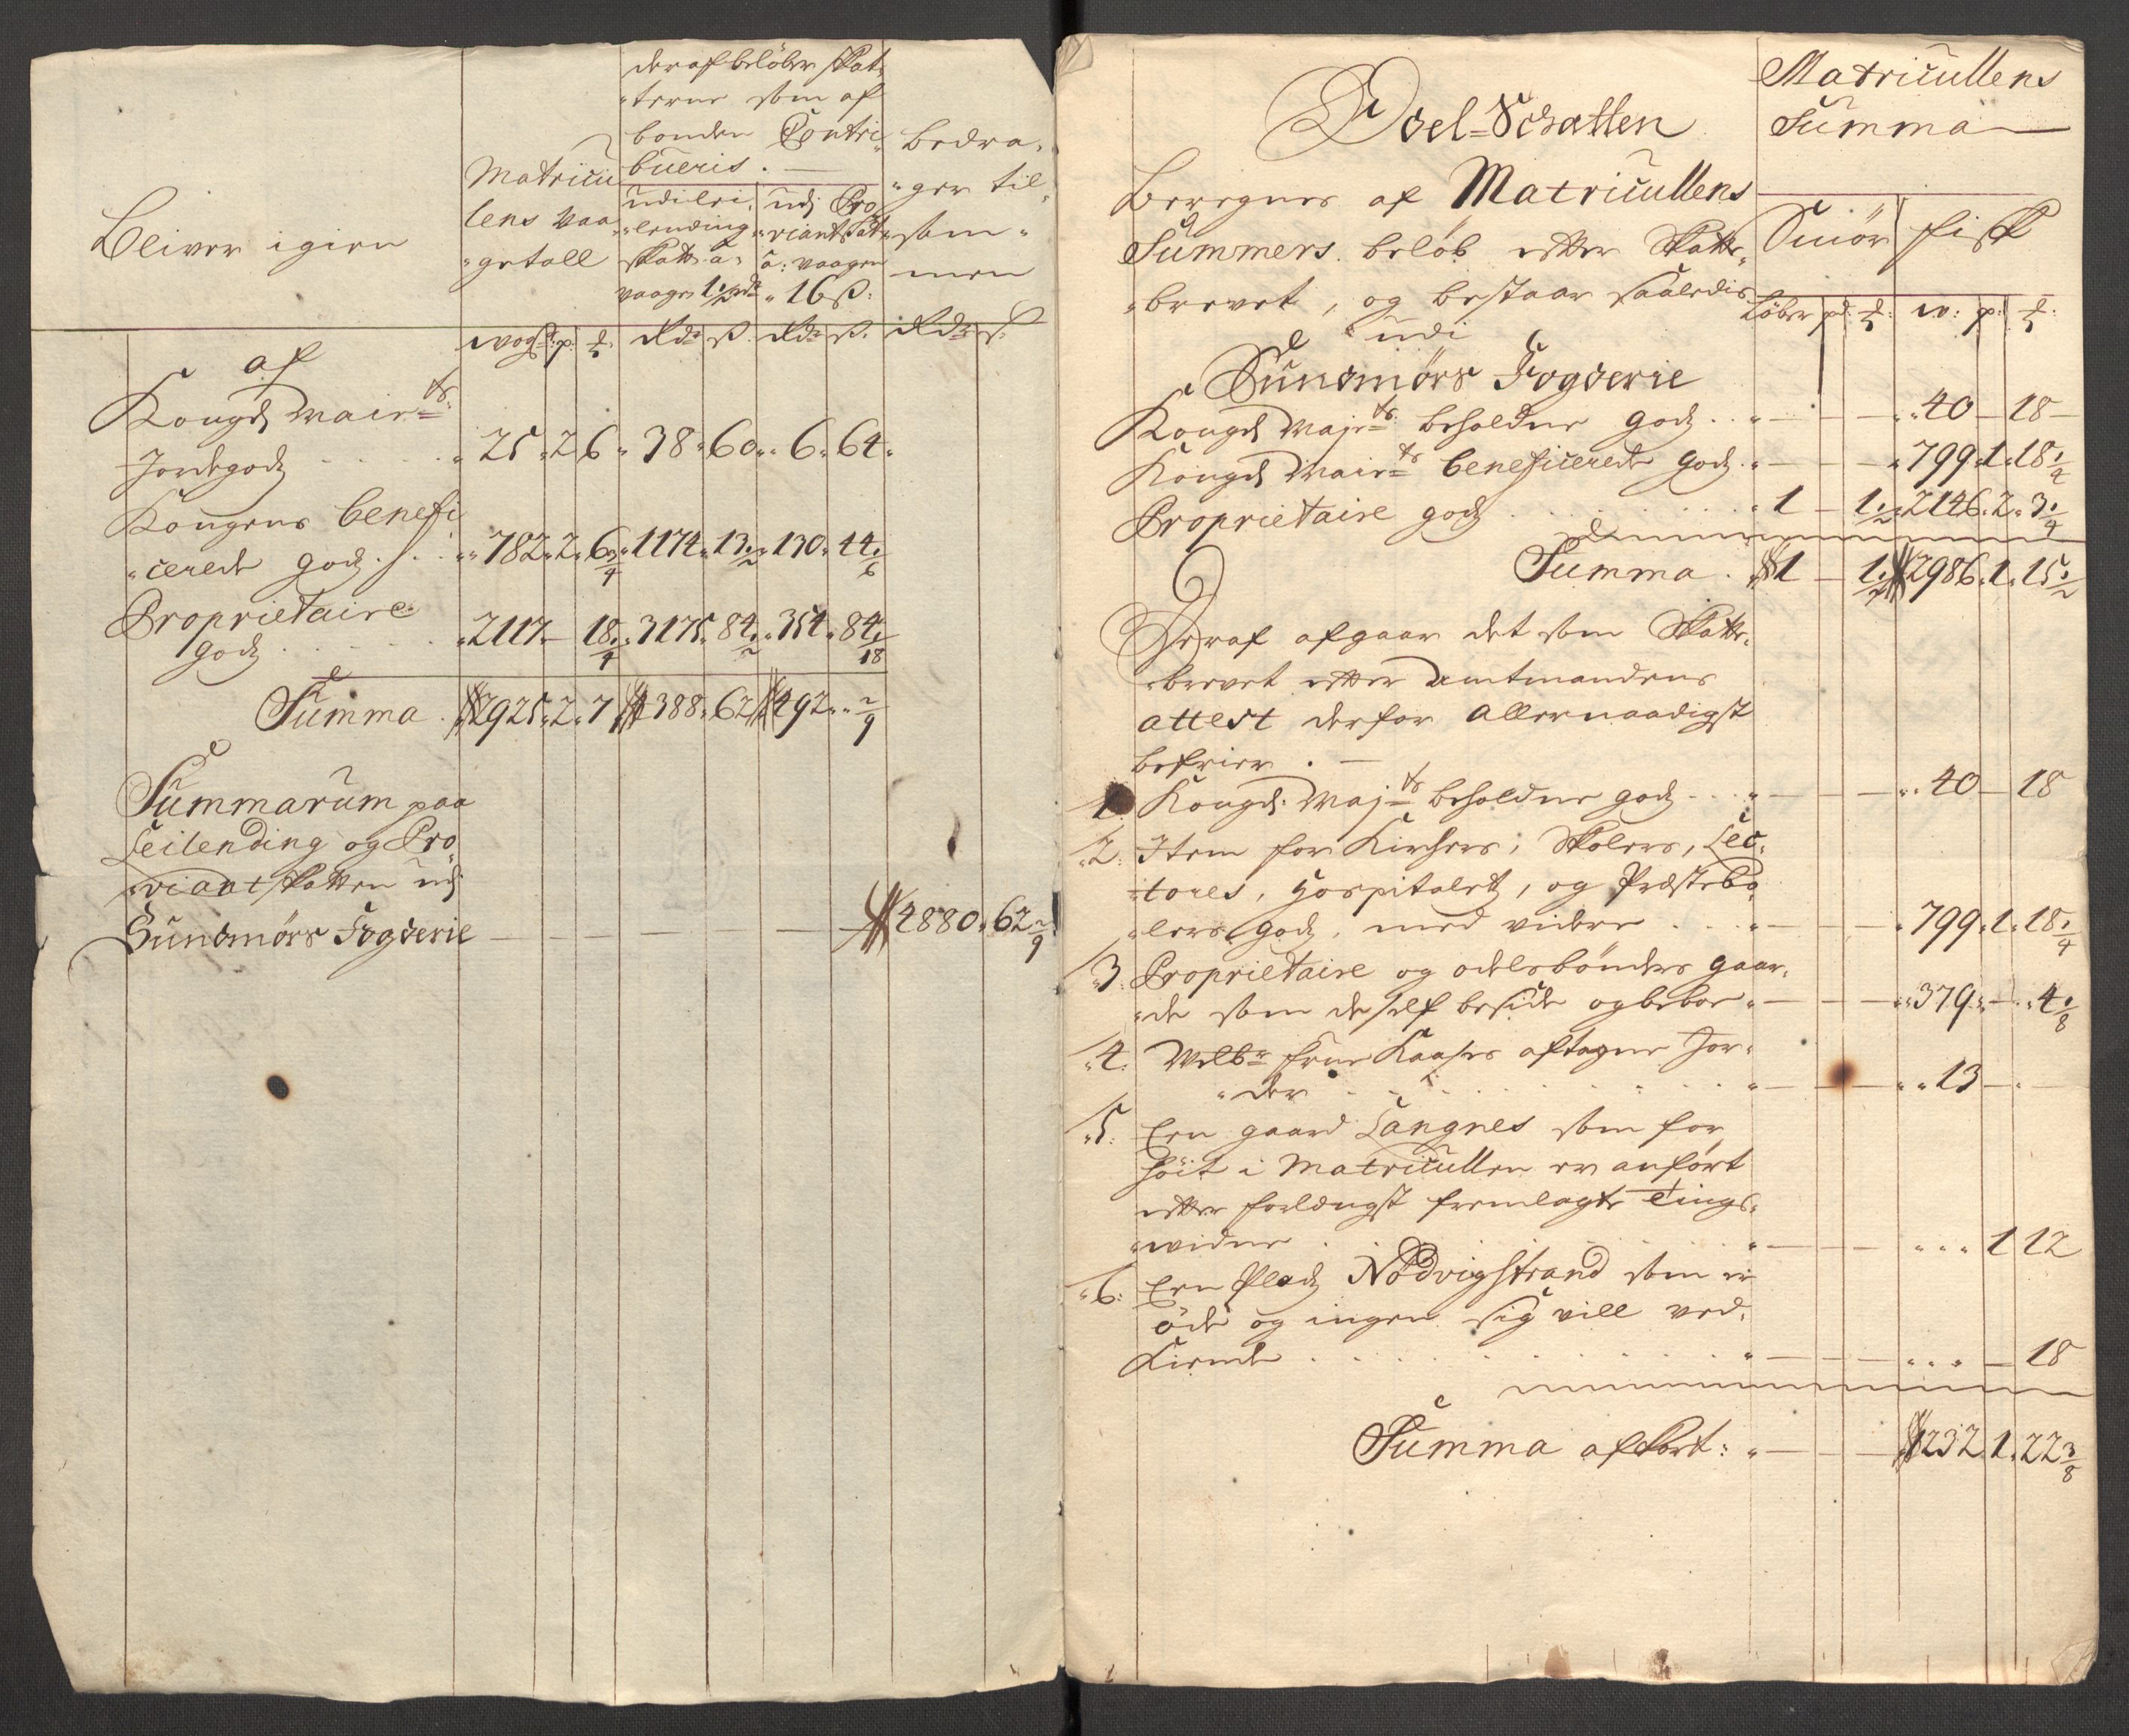 deraf beløber skat-
terne som af
bonden Contri-
bueris.
Bliver igien
Matricu-
lens vaa-
getall
udi lei-
lending
skatt á
vaagen 1½ rdr
udj Pro-
viantskatt
á vaagen
16 ß:
bedra-
ger til-
sam-
men
wog: p: ℔: Rdr ß. Rdr ß. Rdr ß:
af
Kongl Maiets
Jordegodz . . . 25. 2. 6. 38. 60. 6. 64.
Kongens benefi-
cerede godz . . 782. 2. 6¾. 1174. 13½. 130. 44 1/6
Proprietaire
godz . . . . 2117. – 18¼. 3175. 84½. 354. 84 1/18
Summa. 2925. 2. 7. 4388. 62. 492. 2/9
Summarum paa
Leilending og Pro-
viantskatten udj
Sundmørs Fogderie – – – – 4880. 62 2/9
Odel-Schatten
Matricullens
Summa
Beregnes af Matricullens
Summers beløb efter Skatte-
brevet, og bestaar saaledis
udi
Smør fisk
Løber pd: ℔: w: p: ℔:
Sundmørs Fogderie
Kongl Majets beholdne godz . . – – – 40 – 18 –
Kongl Maiets beneficerede godz. – – – 799. 1. 18¼
Proprietaire godz . . . . . 1 – 1½ 2146. 2. 3¼
Summa. 1 – 1½ 2986. 1. 15½
Heraf afgaar det som Skatte-
brevet efter Amtmandens
attest derfor allernaadigst
befrier. –
1. Kongl: Majts beholdne godz . . . – – – 40 – 18
2. Item for Kirkers, Skolers, Lec-
tores, Hospitaletz, og Præstebo-
lers godz, med videre . . . – – – 799. 1. 18¼
3. Proprietaire og odelsbønders gaar-
de som de self beside og beboe – – – 379. – 4 1/8
4. Velbr frue Kaases aftagne Jor-
der . . . . . – – – 13 – –
5. Een gaard Langnes som for
høit i Matricullen er anført
efter forlængst fremlagte Tings-
widne . . . . . – – – 1 12
6. Een Pladz Nødvigstrand som er
øde og ingen sig vill ved-
kiende . . . . . – – – – 18
Summa afkort: – – 1232. 1. 22⅜